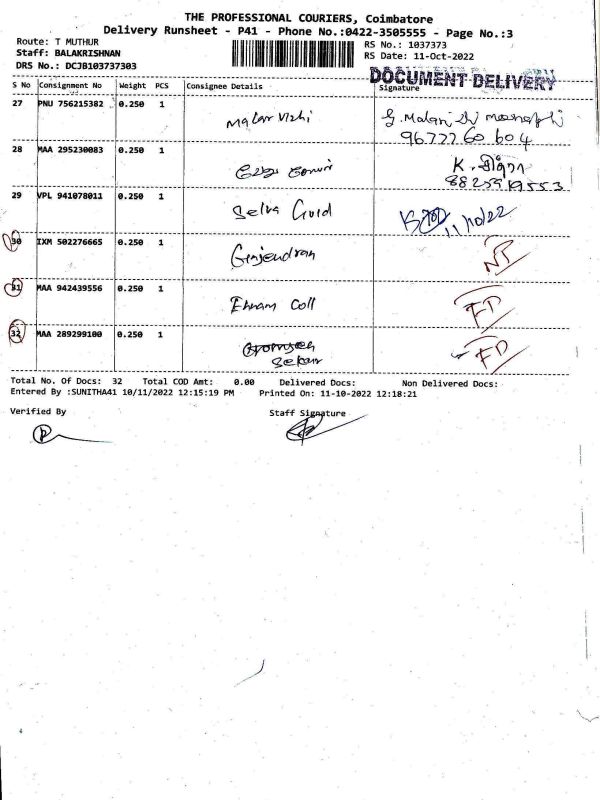 THE PROFESSIONAL COURIERS, Coimbatore
Delivery Runsheet - P41 - Phone No.:0422-3505555 - Page No.:3
Route: T MUTHUR
Staff: BALAKRISHNAN
DRS No.: DCJB103737303
RS No.: 1037373
RS Date: 11-Oct-2022
DOCUMENT DELIVERY
S No Consignment No Weight PCS Consignee Details Signature
27 PNU 756215382 0.250 1 Malar Vizhi
9677760604
28 MAA 295230083 0.250 1 K.
29 VPL 941078011 0.250 1 Selva 11/10/22
30 IXM 502276665 0.250 1 NP
31 MAA 942439556 0.250 1 Coll FD
32 MAA 289299100 0.250 1 FD
Total No. Of Docs: 32 Total COD Amt: 0.00 Delivered Docs: Non Delivered Docs:
Entered By :SUNITHA41 10/11/2022 12:15:19 PM Printed On: 11-10-2022 12:18:21
Verified By Staff Signature